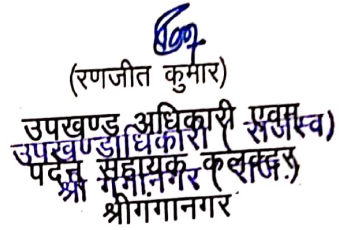 (रणजीत कुमार)
उपखण्ड अधिकारी एवम्
उपखण्डाधिकारी ( राजस्व)
पदेन सहायक कलक्टर
श्री गंगानगर ( राज.)
श्रीगंगानगर